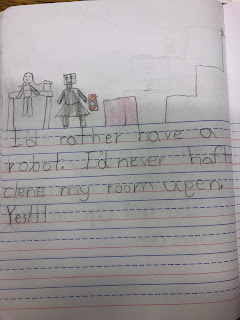 I'd rather have a
robot. I'd never haft
clene my room agen.
Yes!!!